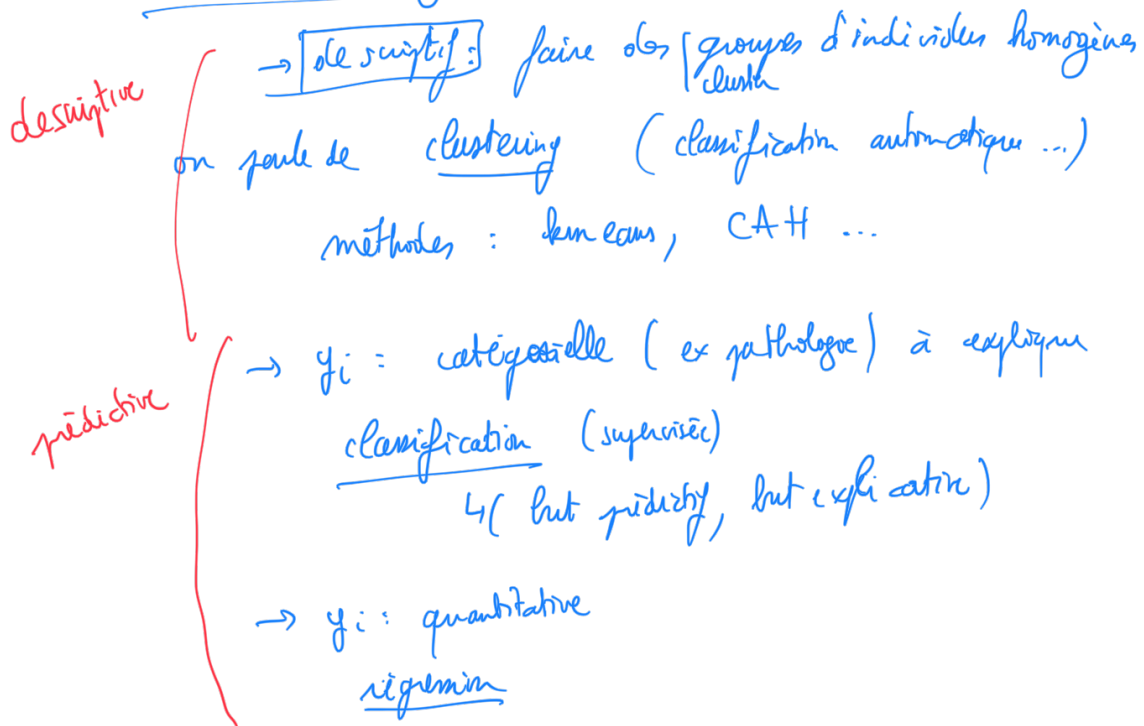 → descriptif : faire des groupes d'individus homogènes
cluster
descriptive
on parle de clustering (classification automatique ...)
méthodes : kmeans, CAH ...
→ yi : catégorielle (ex pathologie) à expliquer
prédictive
classification (supervisée)
↳ (but prédictif, but explicative)
→ yi : quantitative
régression